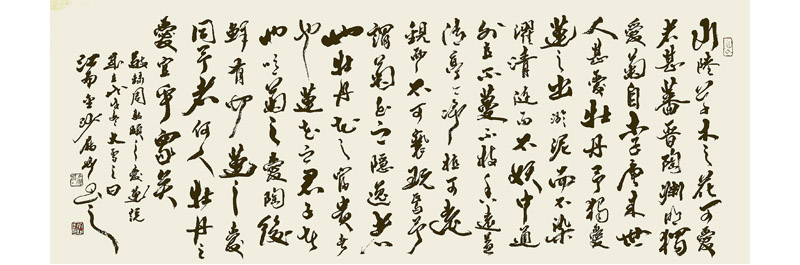 水陸草木之花可愛
者甚蕃晉陶淵明獨
愛菊自李唐来世
人甚愛牡丹予獨愛
蓮之出淤泥而不染
濯清漣而不妖中通
外直不蔓不枝香遠益
清亭亭净植可遠
觀而不可褻玩焉予
謂菊花之隱逸者
也牡丹花之富貴者
也蓮花之君子者
也噫菊之愛陶後
鮮有聞蓮之愛
同予者何人牡丹之
愛宜乎眾矣
敬録周敦頤之愛蓮説
大雪之日
江南金沙 書之